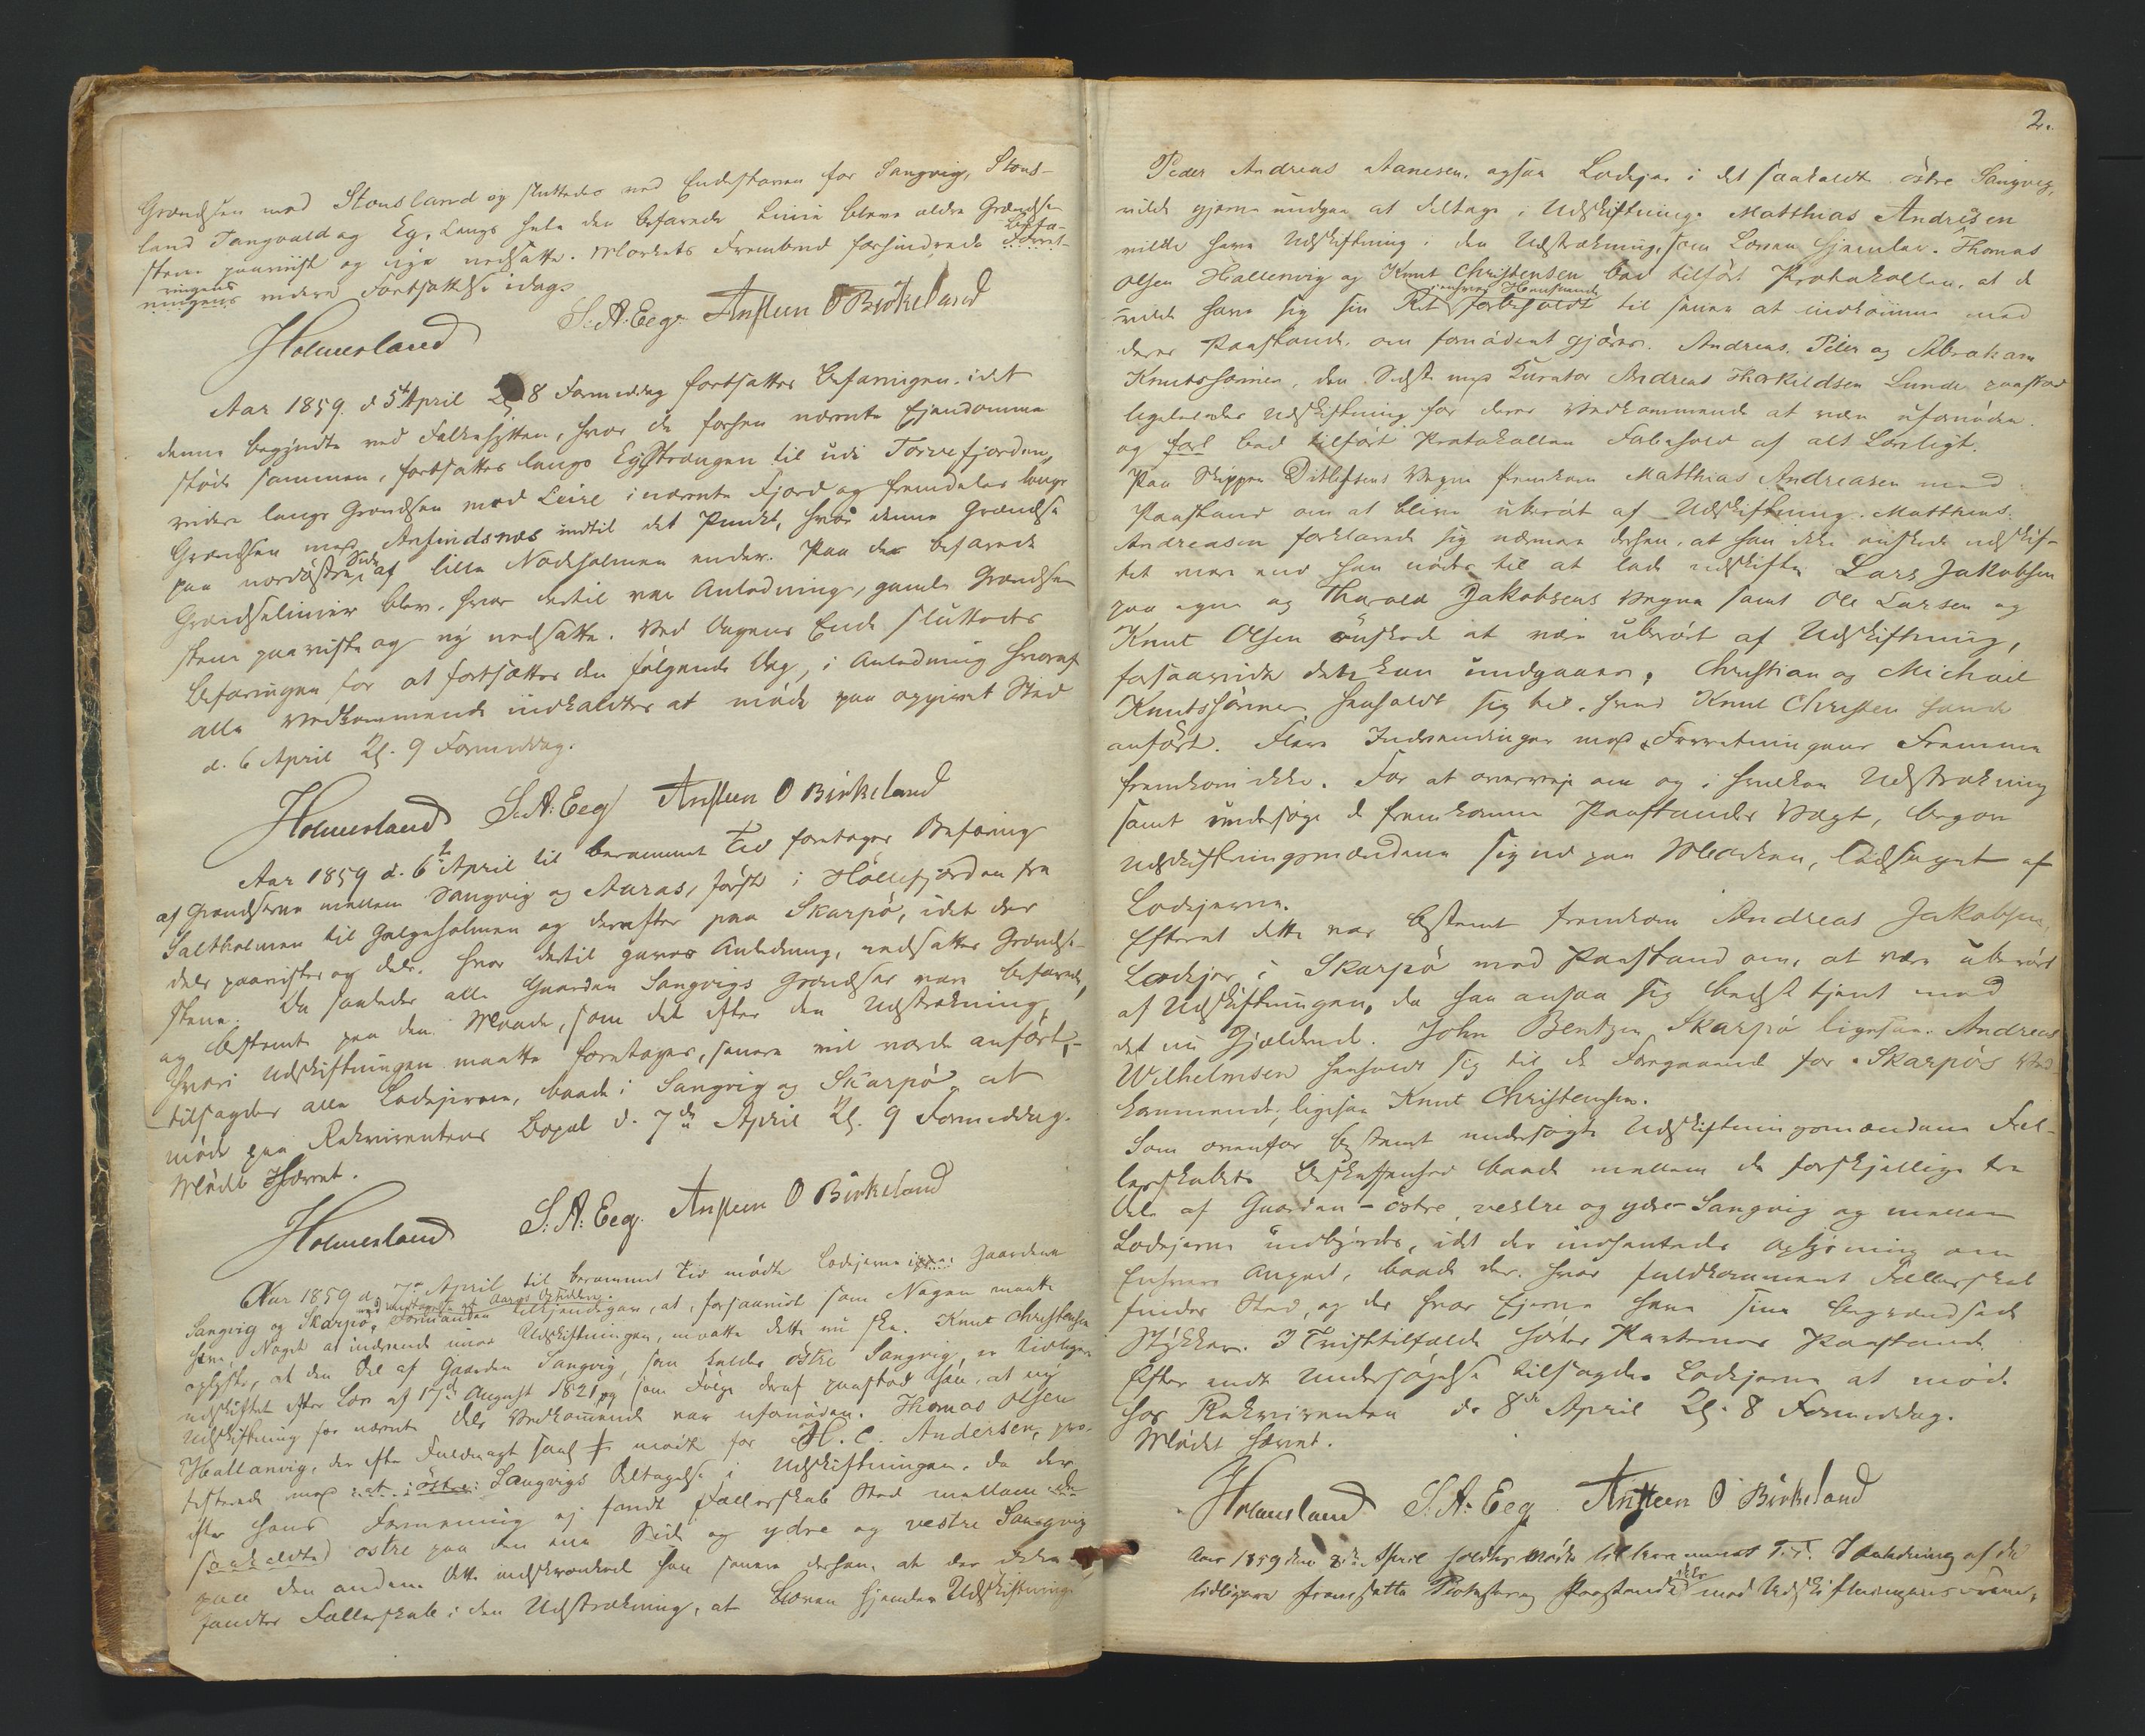 Grændsen med Stousland og sluttedes ved Endestenen for Sangvig, Stous-
land Tangvald og Eg. Langs hele den befarede Linie bleve ældre Grændse-
stene paaviist og nye nedsatte. Mørkets Frembrud forhindrede Befa-
ringens videre Fortsættelse idag.
Holmesland S. A. Eeg. Ansteen O Birkeland
Aar 1859 d 5te April Kl 8 Formiddag fortsattes Befaringen, idet
denne begyndte ved Falkehytten, hvor de forhen nævnte Ejendomme
støde sammen, fortsattes langs Egstrangen til ud i Torvefjorden,
videre langs Grændsen med Leire i nævnte Fjord og fremdeles langs
Grændsen med Assindsnæs indtil det Punkt, hvor denne Grændse
paa nordøstre Side af lille Nodeholmen ender. Paa de befarede
Grændselinier blev, hvor dertil var Anledning, gamle Grændse-
stene paaviste og ny nedsatte. Ved Dagens Ende sluttedes
Befaringen for at fortsættes den følgende Dag, i Anledning hvoraf
alle Vedkommende indkaldtes at møde paa opgivet Sted
d. 6 April Kl. 9 Formiddag.
Holmesland S. A. Eeg Ansteen O Birkeland
Aar 1859 d. 6te April til berammet Tid foretages Befaring
af Grændserne mellem Sangvig og Auraas, først i Høllefjorden fra
Saltholmen til Galgeholmen og derefter paa Skarpø, idet der
dels paavistes og dels, hvor dertil gaves Anledning, nedsattes Grændse-
stene. Da saaledes alle Gaarden Sangvigs Grændser var befarede,
og bestemt paa den Maade, som det efter den Udstrækning,
hvori Udskiftningen maatte foretages, senere vil vorde anført,-
tilsagdes alle Lodejerne, baade i Sangvig og Skarpø at
møde paa Rekvirentens Bopæl d. 7de April Kl. 9 Formiddag.
Mødet Hævet.
Holmesland S. A. Eeg. Ansteen O Birkeland
Aar 1859 d. 7de April til berammet Tid mødte Lodejerne i Gaardene
Sangvig og Skarpø. Formanden tilkjendegav, at, forsaavidt som Nogen maatte
have Noget at indvende imod Udskiftningen, maatte dette nu ske. Knut Christensen
oplyste, at den Del af Gaarden Sangvig, som kaldes østre Sangvig, er tidligere
udskiftet efter Lov af 17de August 1821, og som Følge deraf paastod han, at ny
Udskiftning for nævnte Dels Vedkommende var ufornøden. Thomas Olsen
Hallanvig, der efter Fuldmagt mødte for H. C. Andersen, pro-
testerede mod østre Sangvigs Deltagelse i Udskiftningen, da der
efter hans Formening ej fandt Fællesskab Sted mellem de
saakaldte østre paa den ene Side og ydre og vestre Sangvig
paa den anden. Dette indskrænkede han senere derhen, at der ikke
fandtes Fællesskab i den Udstrækning, at Loven hjemler Udskiftning.
2.
Peder Andreas Aanesen, ogsaa Lodejer i det saakaldte østre Sangvig,
vilde gjerne undgaa at deltage i Udskiftning. Matthias Andreasen
vilde have Udskiftning i den Udstrækning, som Loven hjemler. Thomas
Olsen Hallenvig og Knut Christensen bad tilført Protokollen, at de
vilde have sig sin Ret forbeholdt til senere at indkomme med
deres Paastande, om fornødent gjøres. Andreas, Peder og Abraham
Knutssønner, den Sidste med Kurator Andreas Thorkildsen Lunde paastod
ligeledes Udskiftning for deres Vedkommende at være ufornøden
og bad tilført Protokollen Forbehold af alt Lovligt.
Paa Skipper Ditlefsens Vegne fremkom Matthias Andreasen med
Paastand om at blive uberørt af Udskiftning. Matthias
Andreasen forklarede sig nærmere derhen, at han ikke ønskede udskif-
tet mere end han nødes til at lade udskifte. Lars Jakobsen
paa egne og Tharald Jakobsens Vegne samt Ole Larsen og
Knut Olsen ønskede at være uberørt af Udskiftning,
forsaavidt dette kan undgaaes. Christian og Michael
Knutssønner henholdt sig til, hvad Knut Christensen havde
anført. Flere Indvendinger mod Forretningens Fremme
fremkom ikke. For at overveje om og i hvilken Udstrækning
samt undersøge de fremkomne Paastandes Vægt, begav
Udskiftningsmændene sig ud paa Marken, ledsaget af
Lodejerne.
Efterat dette var bestemt fremkom Andreas Jakobsen,
Lodejer i Skarpø med Paastand om, at være uberørt
af Udskiftningen, da han ansaa sig bedst tjent med
det nu Gjældende. John Bentzen Skarpø ligesaa. Andreas
Wilhelmsen henholdt sig til de Foregaaende for Skarpøs Ved-
kommende, ligesaa Knut Christensen.
Som ovenfor bestemt undersøgte Udskiftningsmændene Fæl-
lesskabets Beskaffenhed baade mellem de forskjellige tre
Dele af Gaarden - østre, vestre og ydre Sangvig og mellem
Lodejerne indbyrdes, idet der indhentedes Oplysning om
Enhvers Anpart, baade der, hvor fuldkomment Fællesskab
finder Sted, og der hvor Ejerne have sine begrændsede
Stykker. I Tvisttilfælde hørtes Parternes Paastande.
Efter endt Undersøgelse tilsagdes Lodejerne at møde
hos Rekvirenten d. 8de April Kl. 8 Formiddag.
Mødet hævet.
Holmesland S. A. Eeg Ansteen O Birkeland
Aar 1859 den 8de April holdtes Møde til berammet T.T. I Anledning af de
tidligere fremsatte Protester og Paastande mod Udskiftningens Frem-